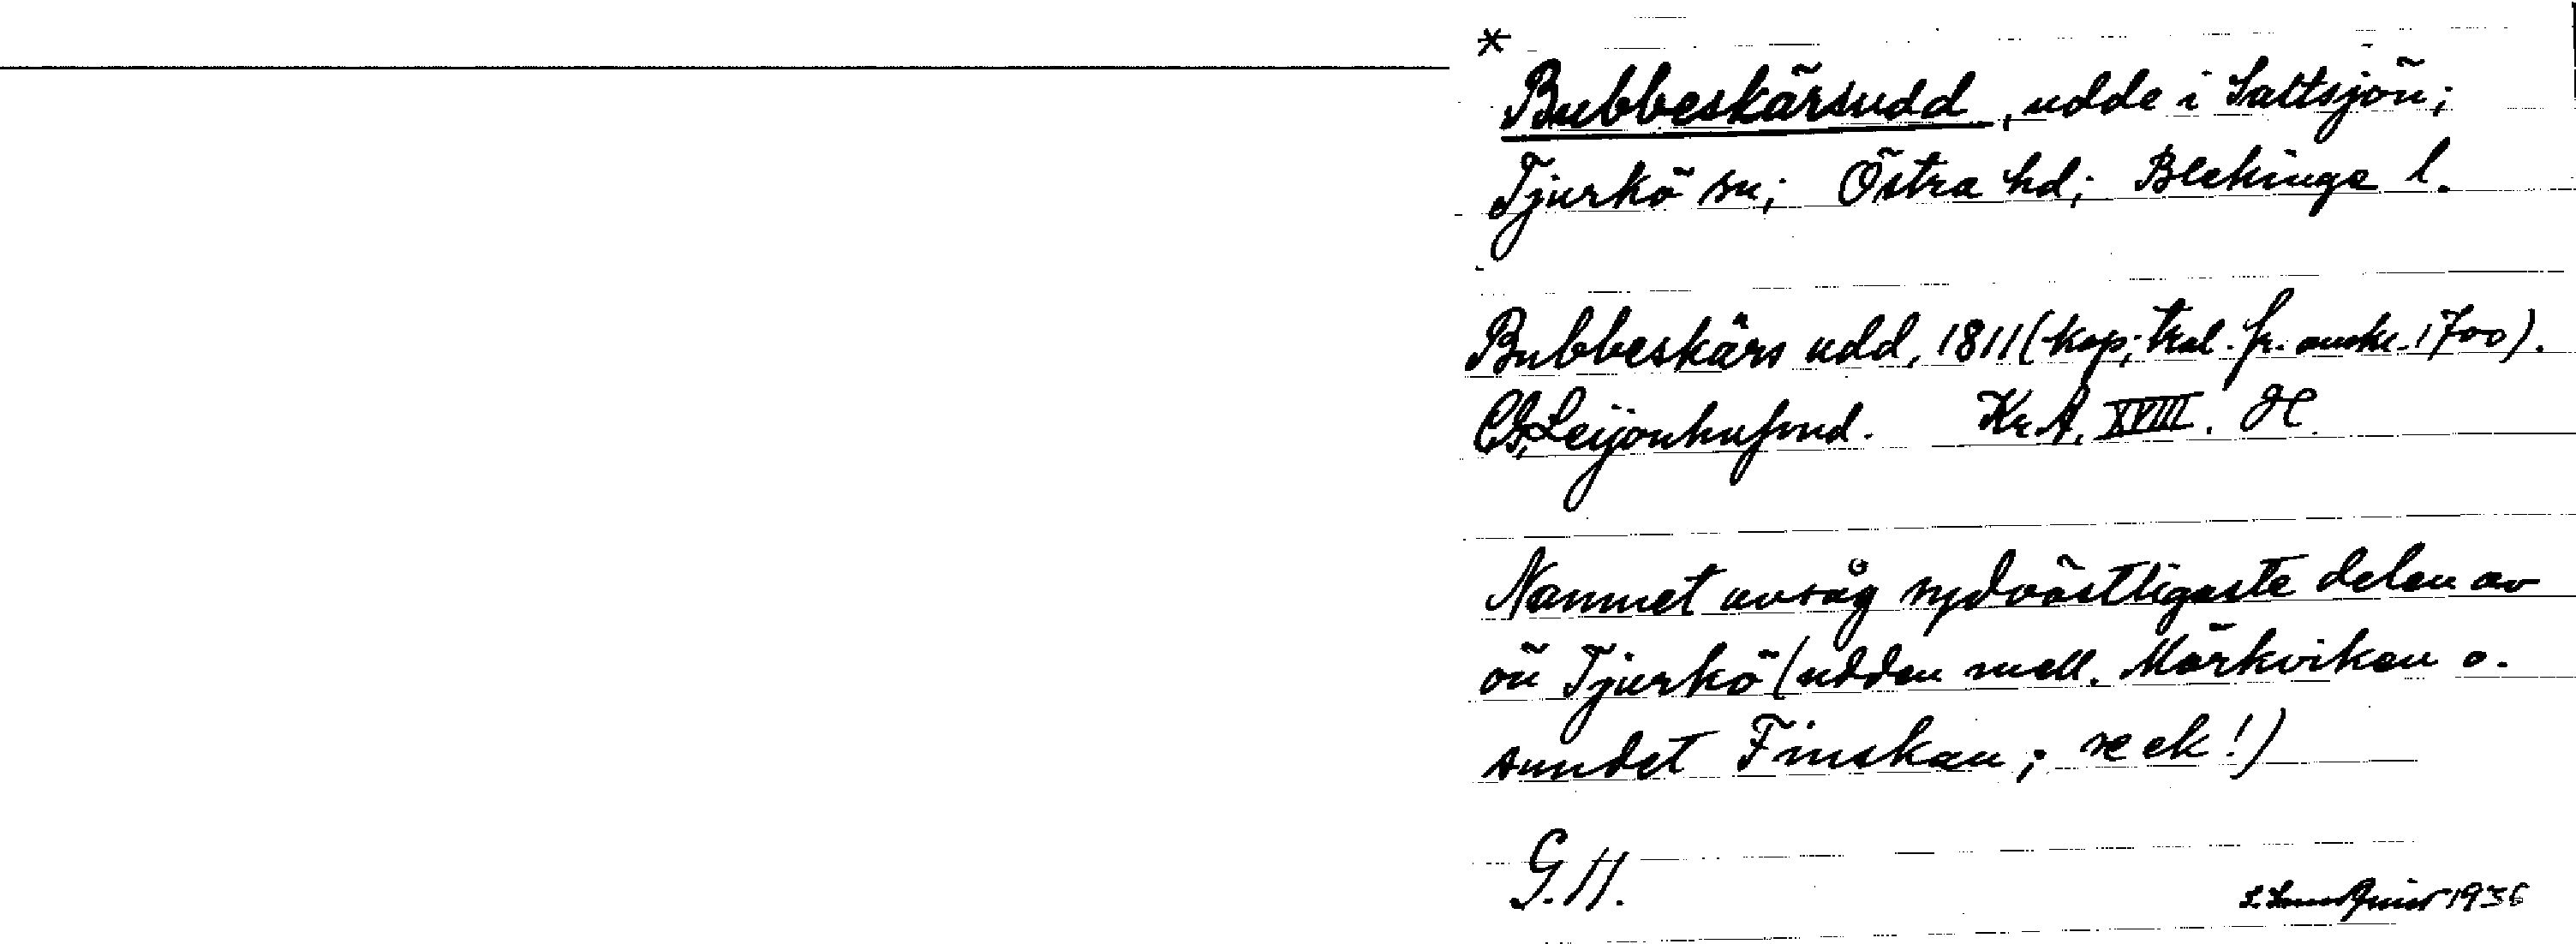 *
Bubbeskärsudd, udde i Saltsjön;
Tjurkö sn; Östra hd; Blekinge l.
Bubbeskärs udd, 1811 (kop; trol. fr. omkr. 1700).
CG, Leijonhufvud. Kr A. XVIII. H
Namnet avsåg sydvästligaste delen av
ön Tjurkö (udden mell. Mörkviken o.
sundet Finskan; se ek!)
G.H.
1936